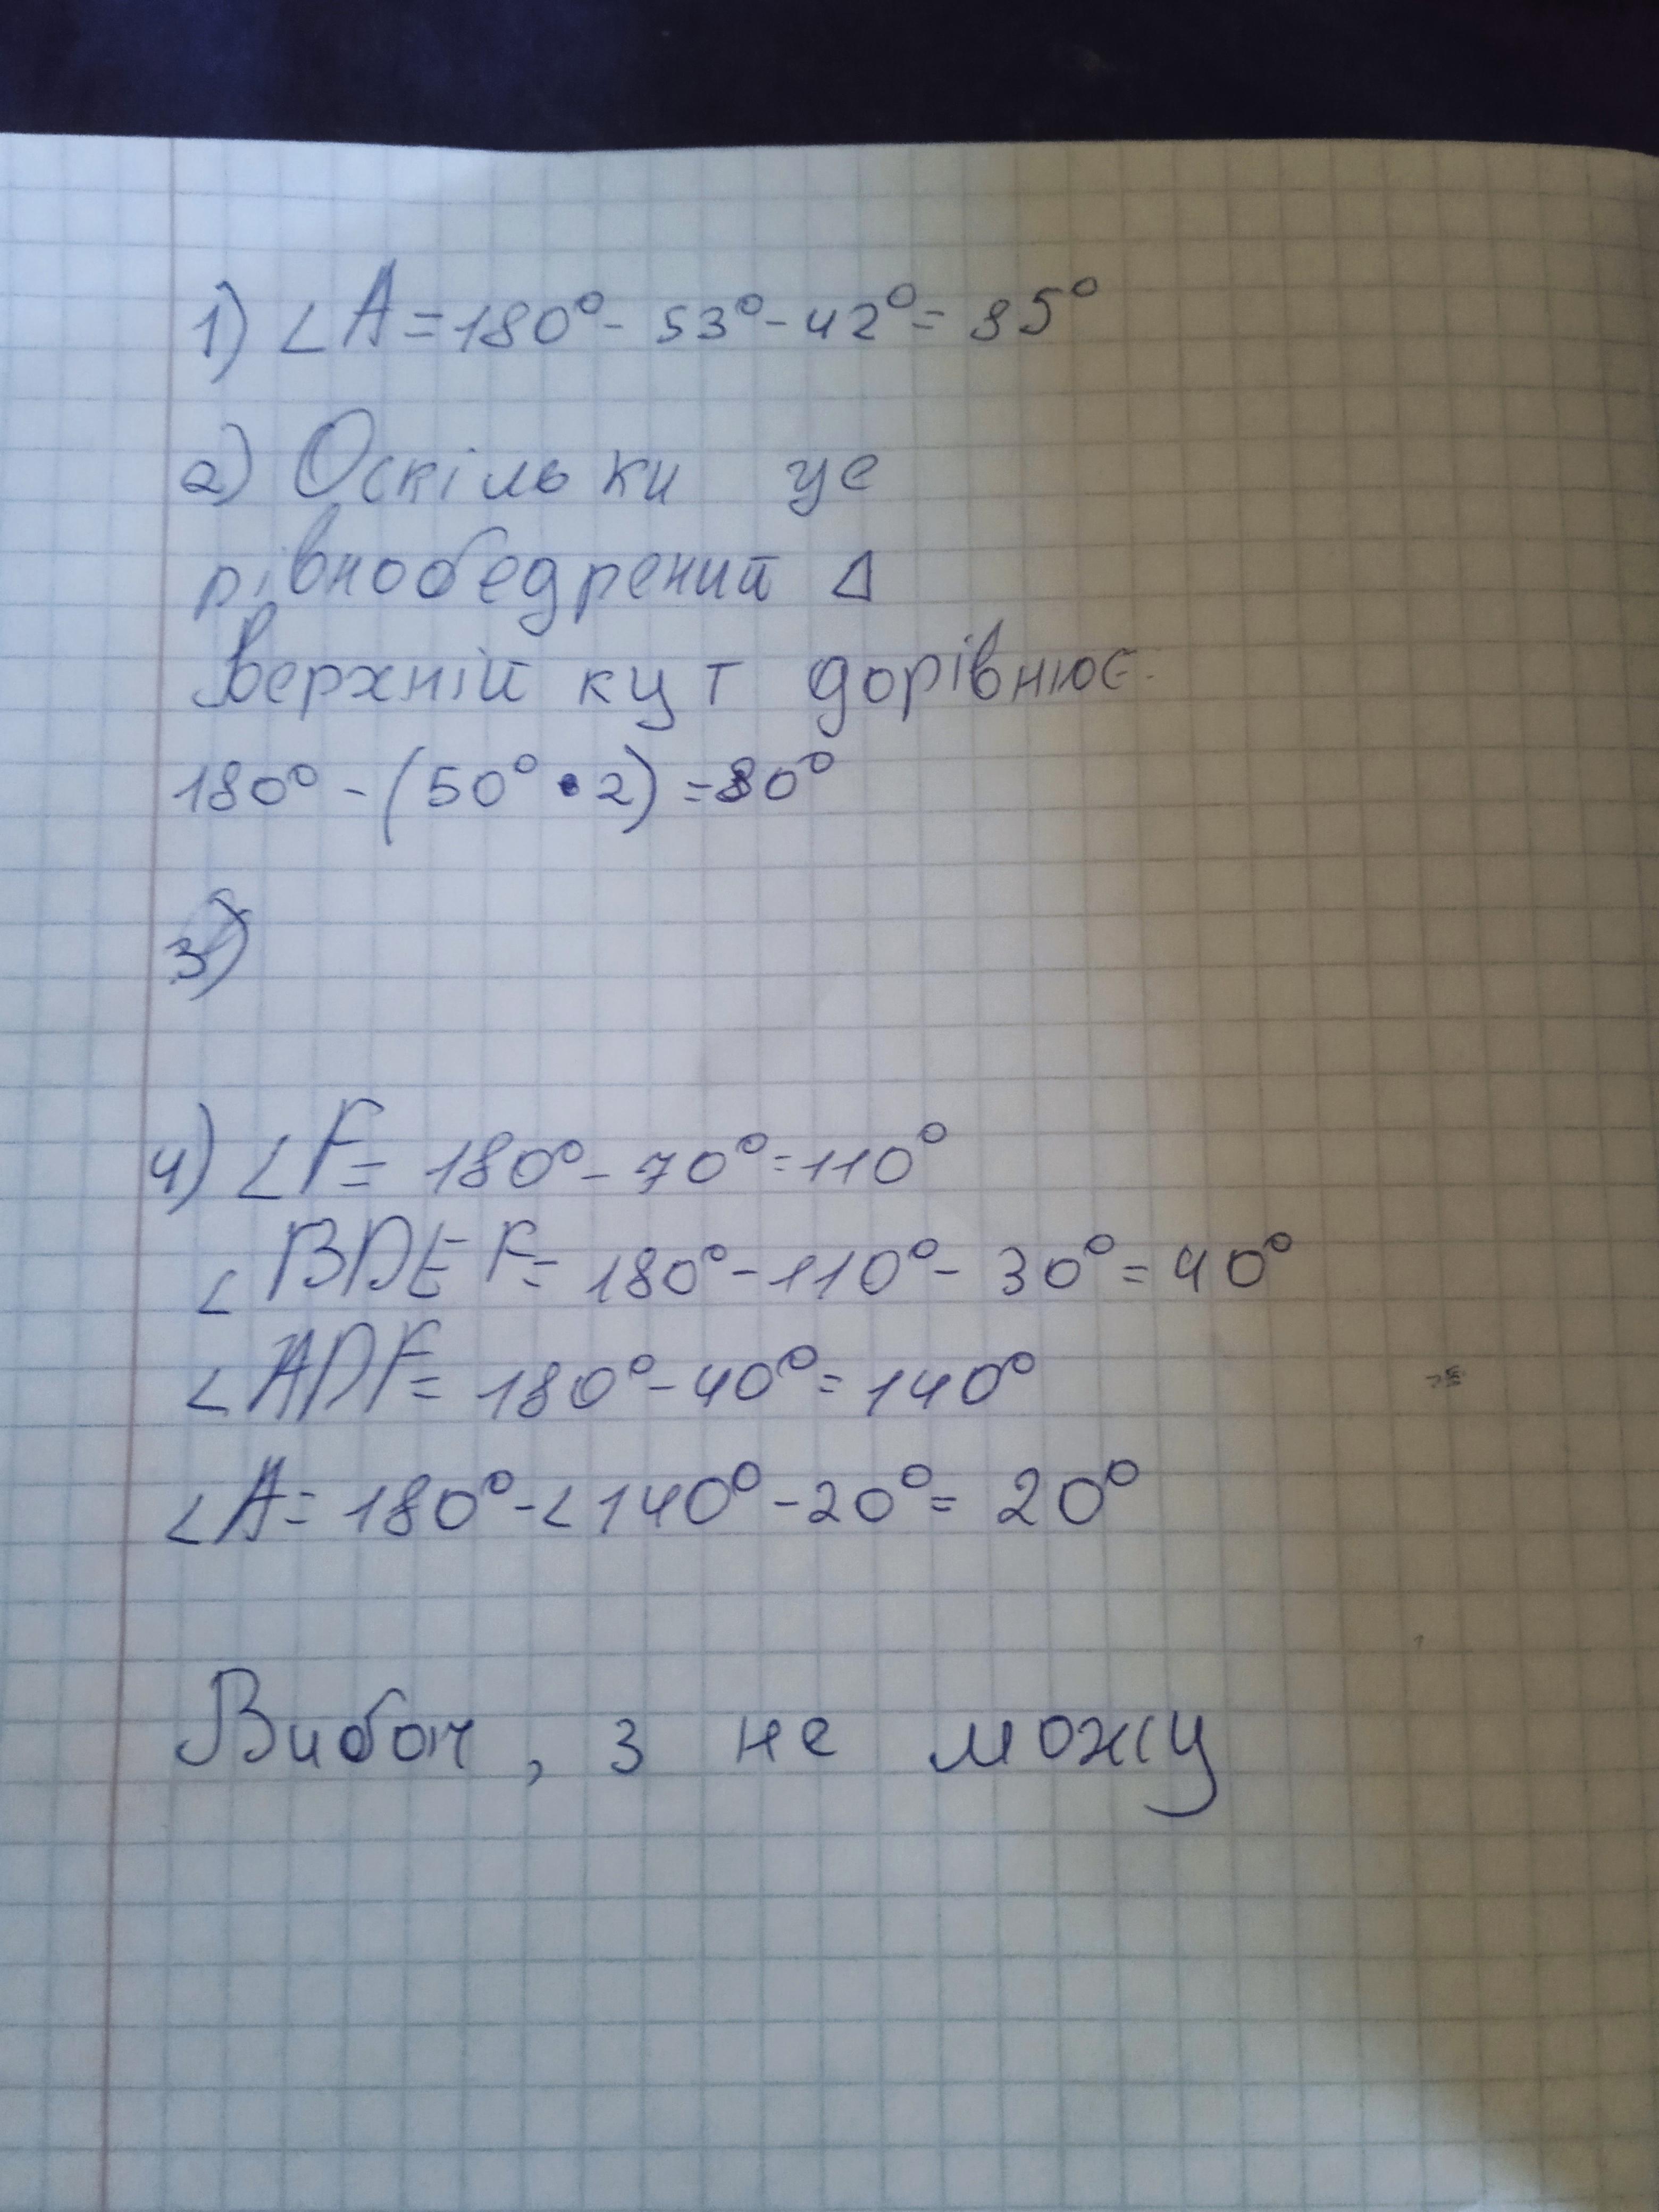 1) ∠A=180°-53°-42°=85°
2) Оскільки це
рівнобедрений Δ
верхній кут дорівнює
180°-(50°•2)=80°
3)
4) ∠F=180°-70°=110°
∠BDEF=180°-110°-30°=40°
∠ADF=180°-40°=140°
∠A=180°-∠140°-20°=20°
Вибач, 3 не можу